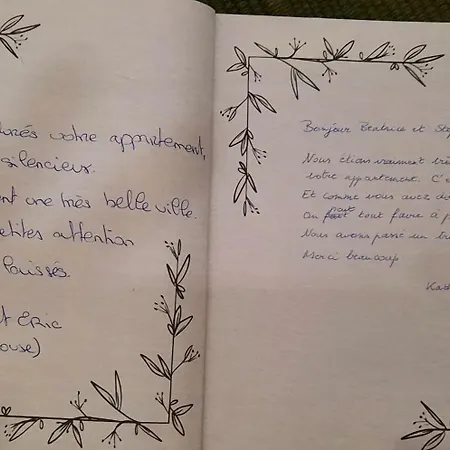 votre appartement,
silencieux.
une très belle ville.
attention
laissés.
et ERIC
Bonjour Béatrice et
Nous étions vraiment
votre appartement. C'
Et comme vous avez
On peut tout faire à
Nous avons passé un
Merci beaucoup